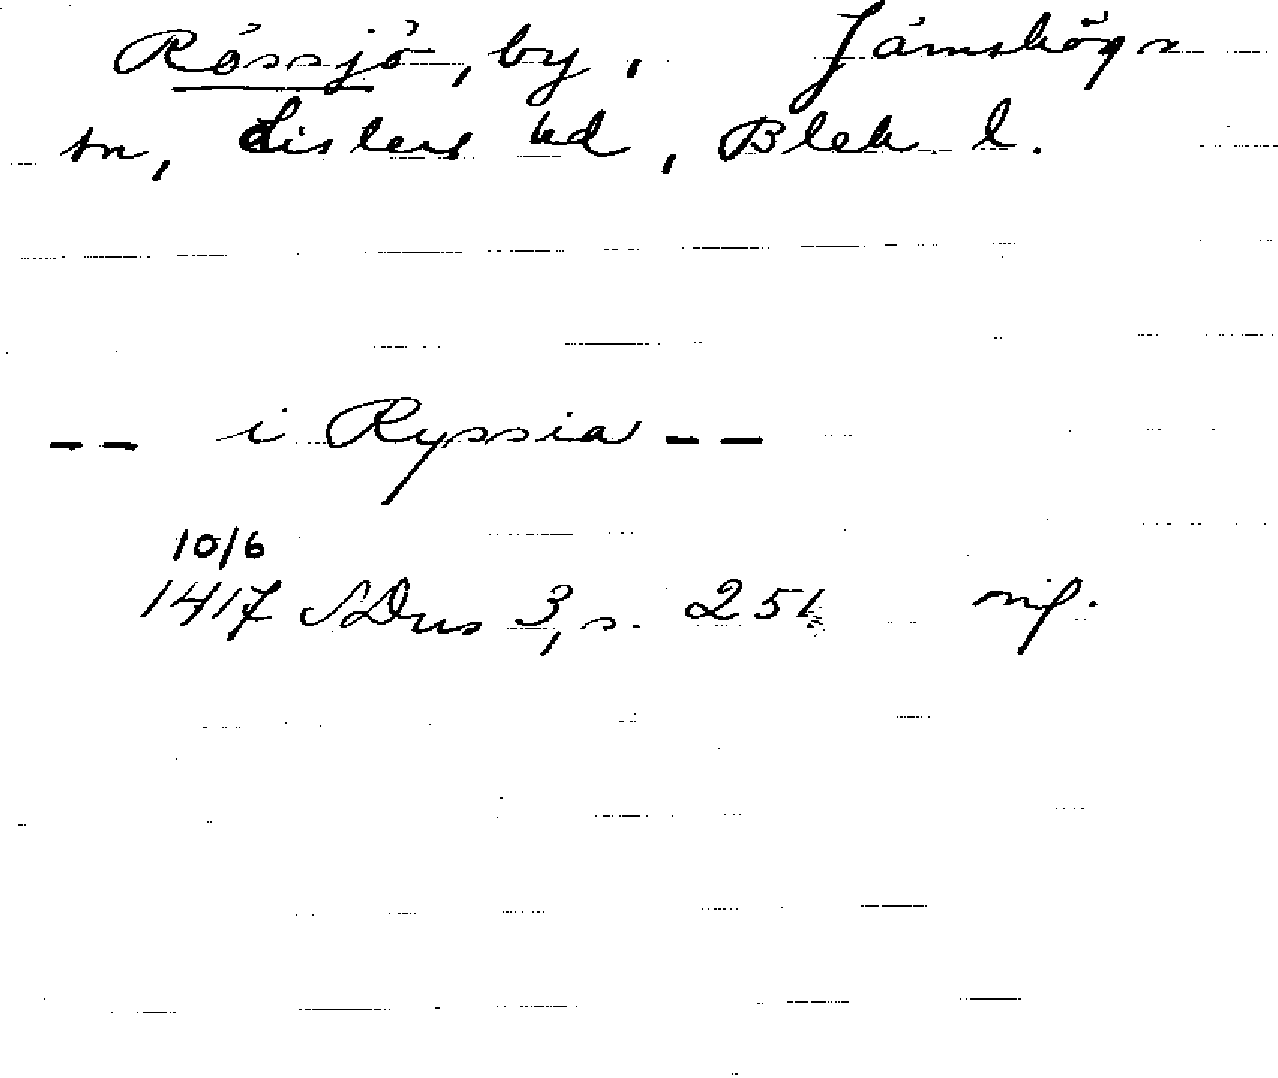 Rössjö, by, Jämshögs
sn, Listers hd, Blek l.
-- i Ryssia --
10/6
1417 SDns 3, s. 251 nf.